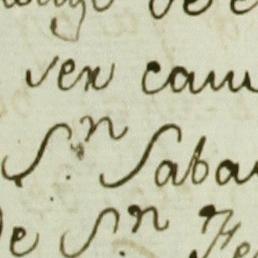 ser cau
S.n Saba
de S.n Fe